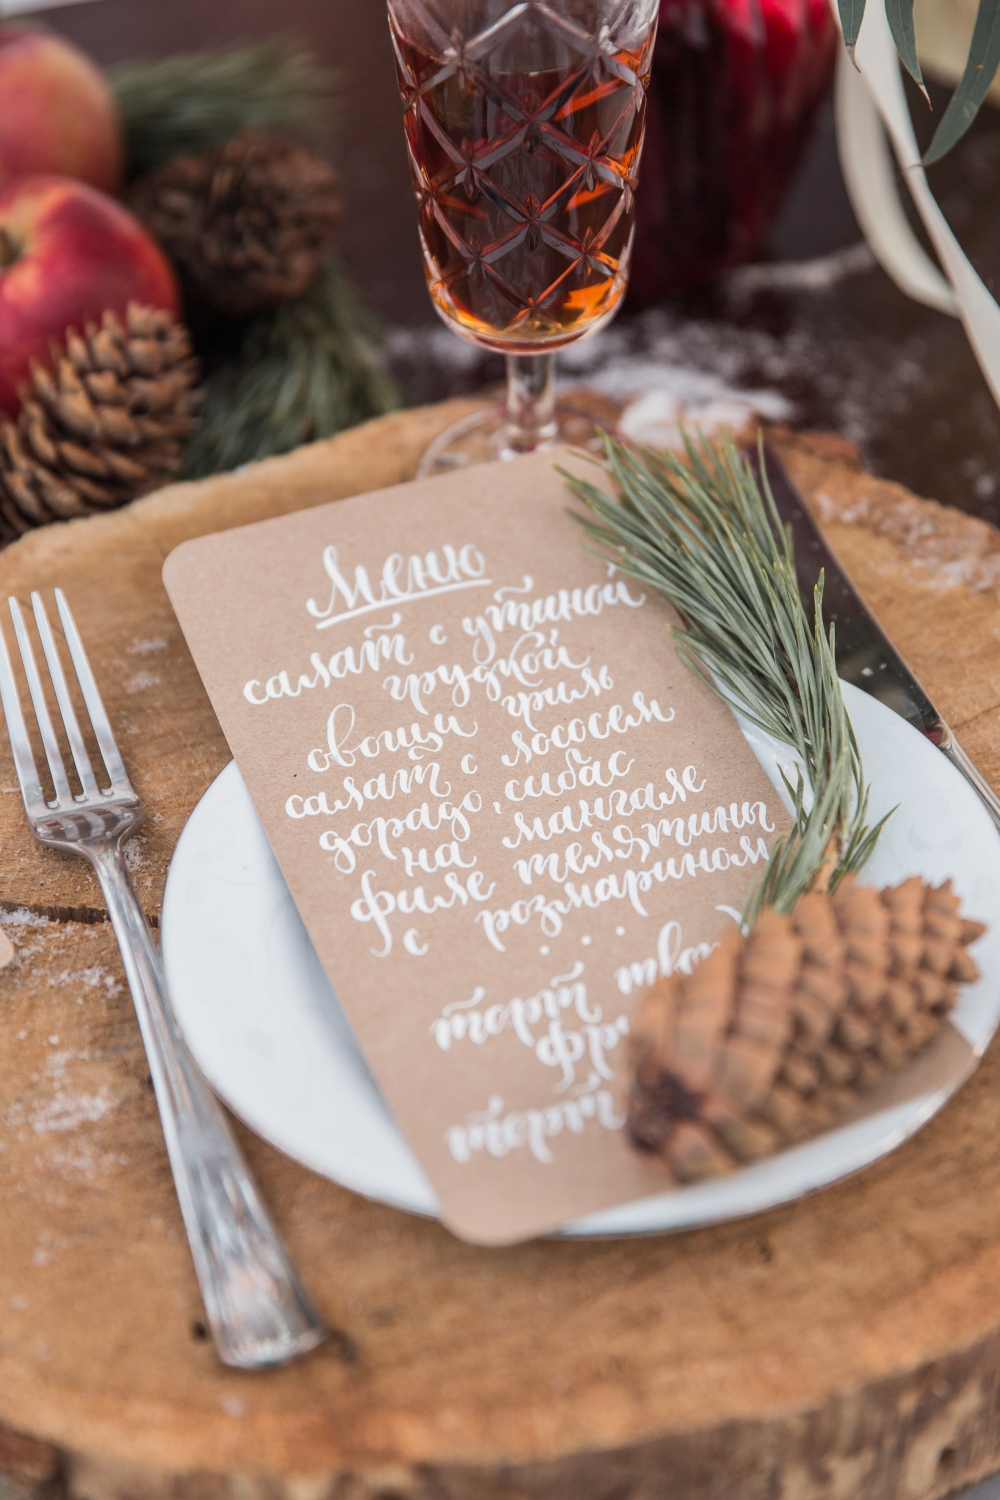 Меню
салат с утиной
грудкой
овощи гриль
салат с лососем
дорадо, сибас
на мангале
филе телятины
с розмарином
...
торт
торт